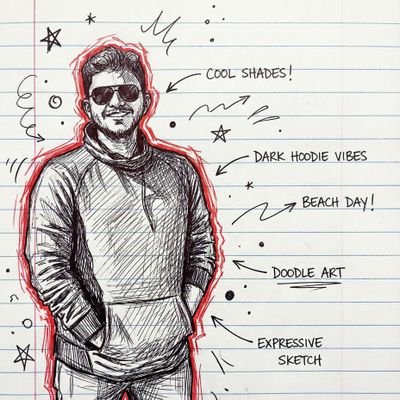 COOL SHADES!
DARK HOODIE VIBES
BEACH DAY!
DOODLE ART
EXPRESSIVE
SKETCH